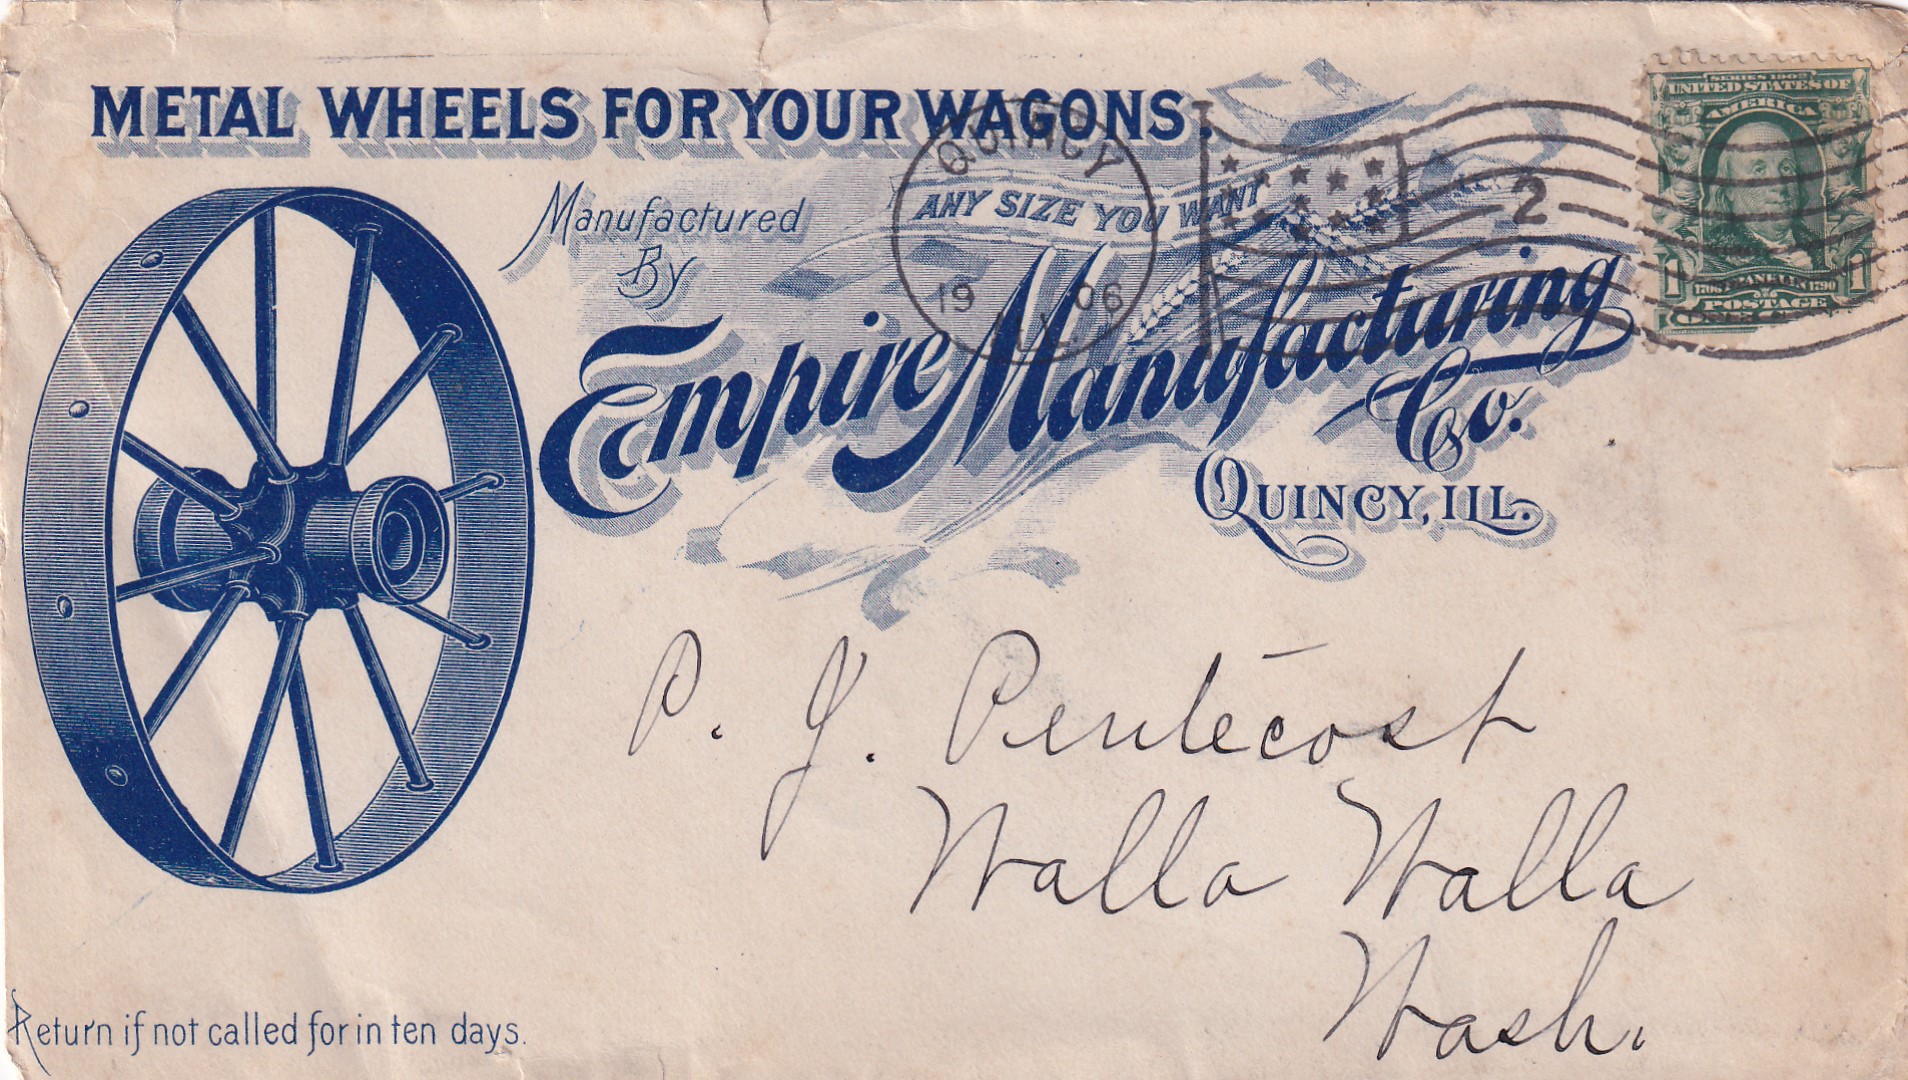 METAL WHEELS FOR YOUR WAGONS.
Manufactured
By
ANY SIZE YOU WANT
Empire Manufacturing
Co.
QUINCY, ILL.
QUINCY
19 06
2
SERIES 1902
UNITED STATES OF
AMERICA
1 FRANKLIN 1
1706 1790
POSTAGE
P. J. Pentecost
Walla Walla
Wash.
Return if not called for in ten days.